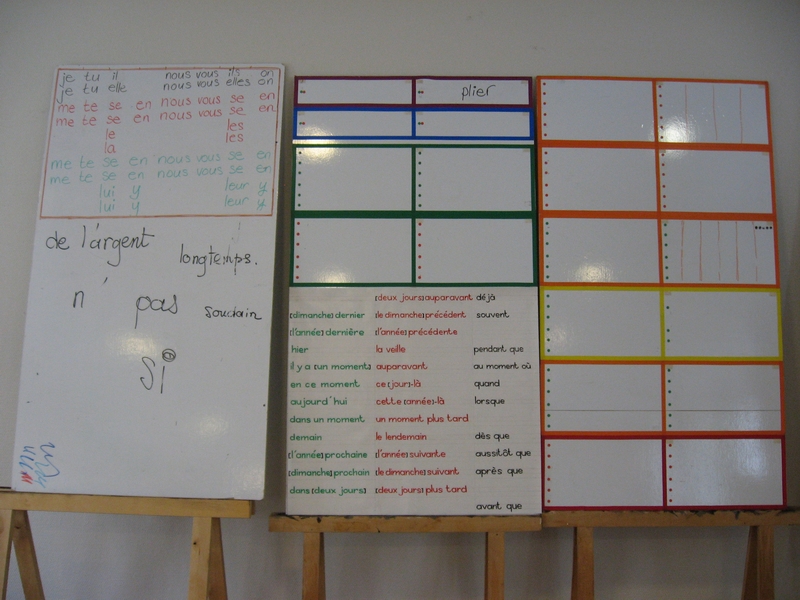 je tu il nous vous ils on
je tu elle nous vous elles on
me te se en nous vous se en
me te se en nous vous se en
le les
la les
me te se en nous vous se en
me te se en nous vous se en
lui y leur y
lui y leur y
de l'argent
longtemps.
n' pas soudain
si
plier
[deux jours] auparavant déjà
[dimanche] dernier [le dimanche] précédent souvent
[l'année] dernière [l'année] précédente
hier la veille pendant que
il y a [un moment] auparavant au moment où
en ce moment ce [jour]-là quand
aujourd'hui cette [année]-là lorsque
dans un moment un moment plus tard
demain le lendemain dès que
[l'année] prochaine [l'année] suivante aussitôt que
[dimanche] prochain [le dimanche] suivant après que
dans [deux jours] [deux jours] plus tard
avant que